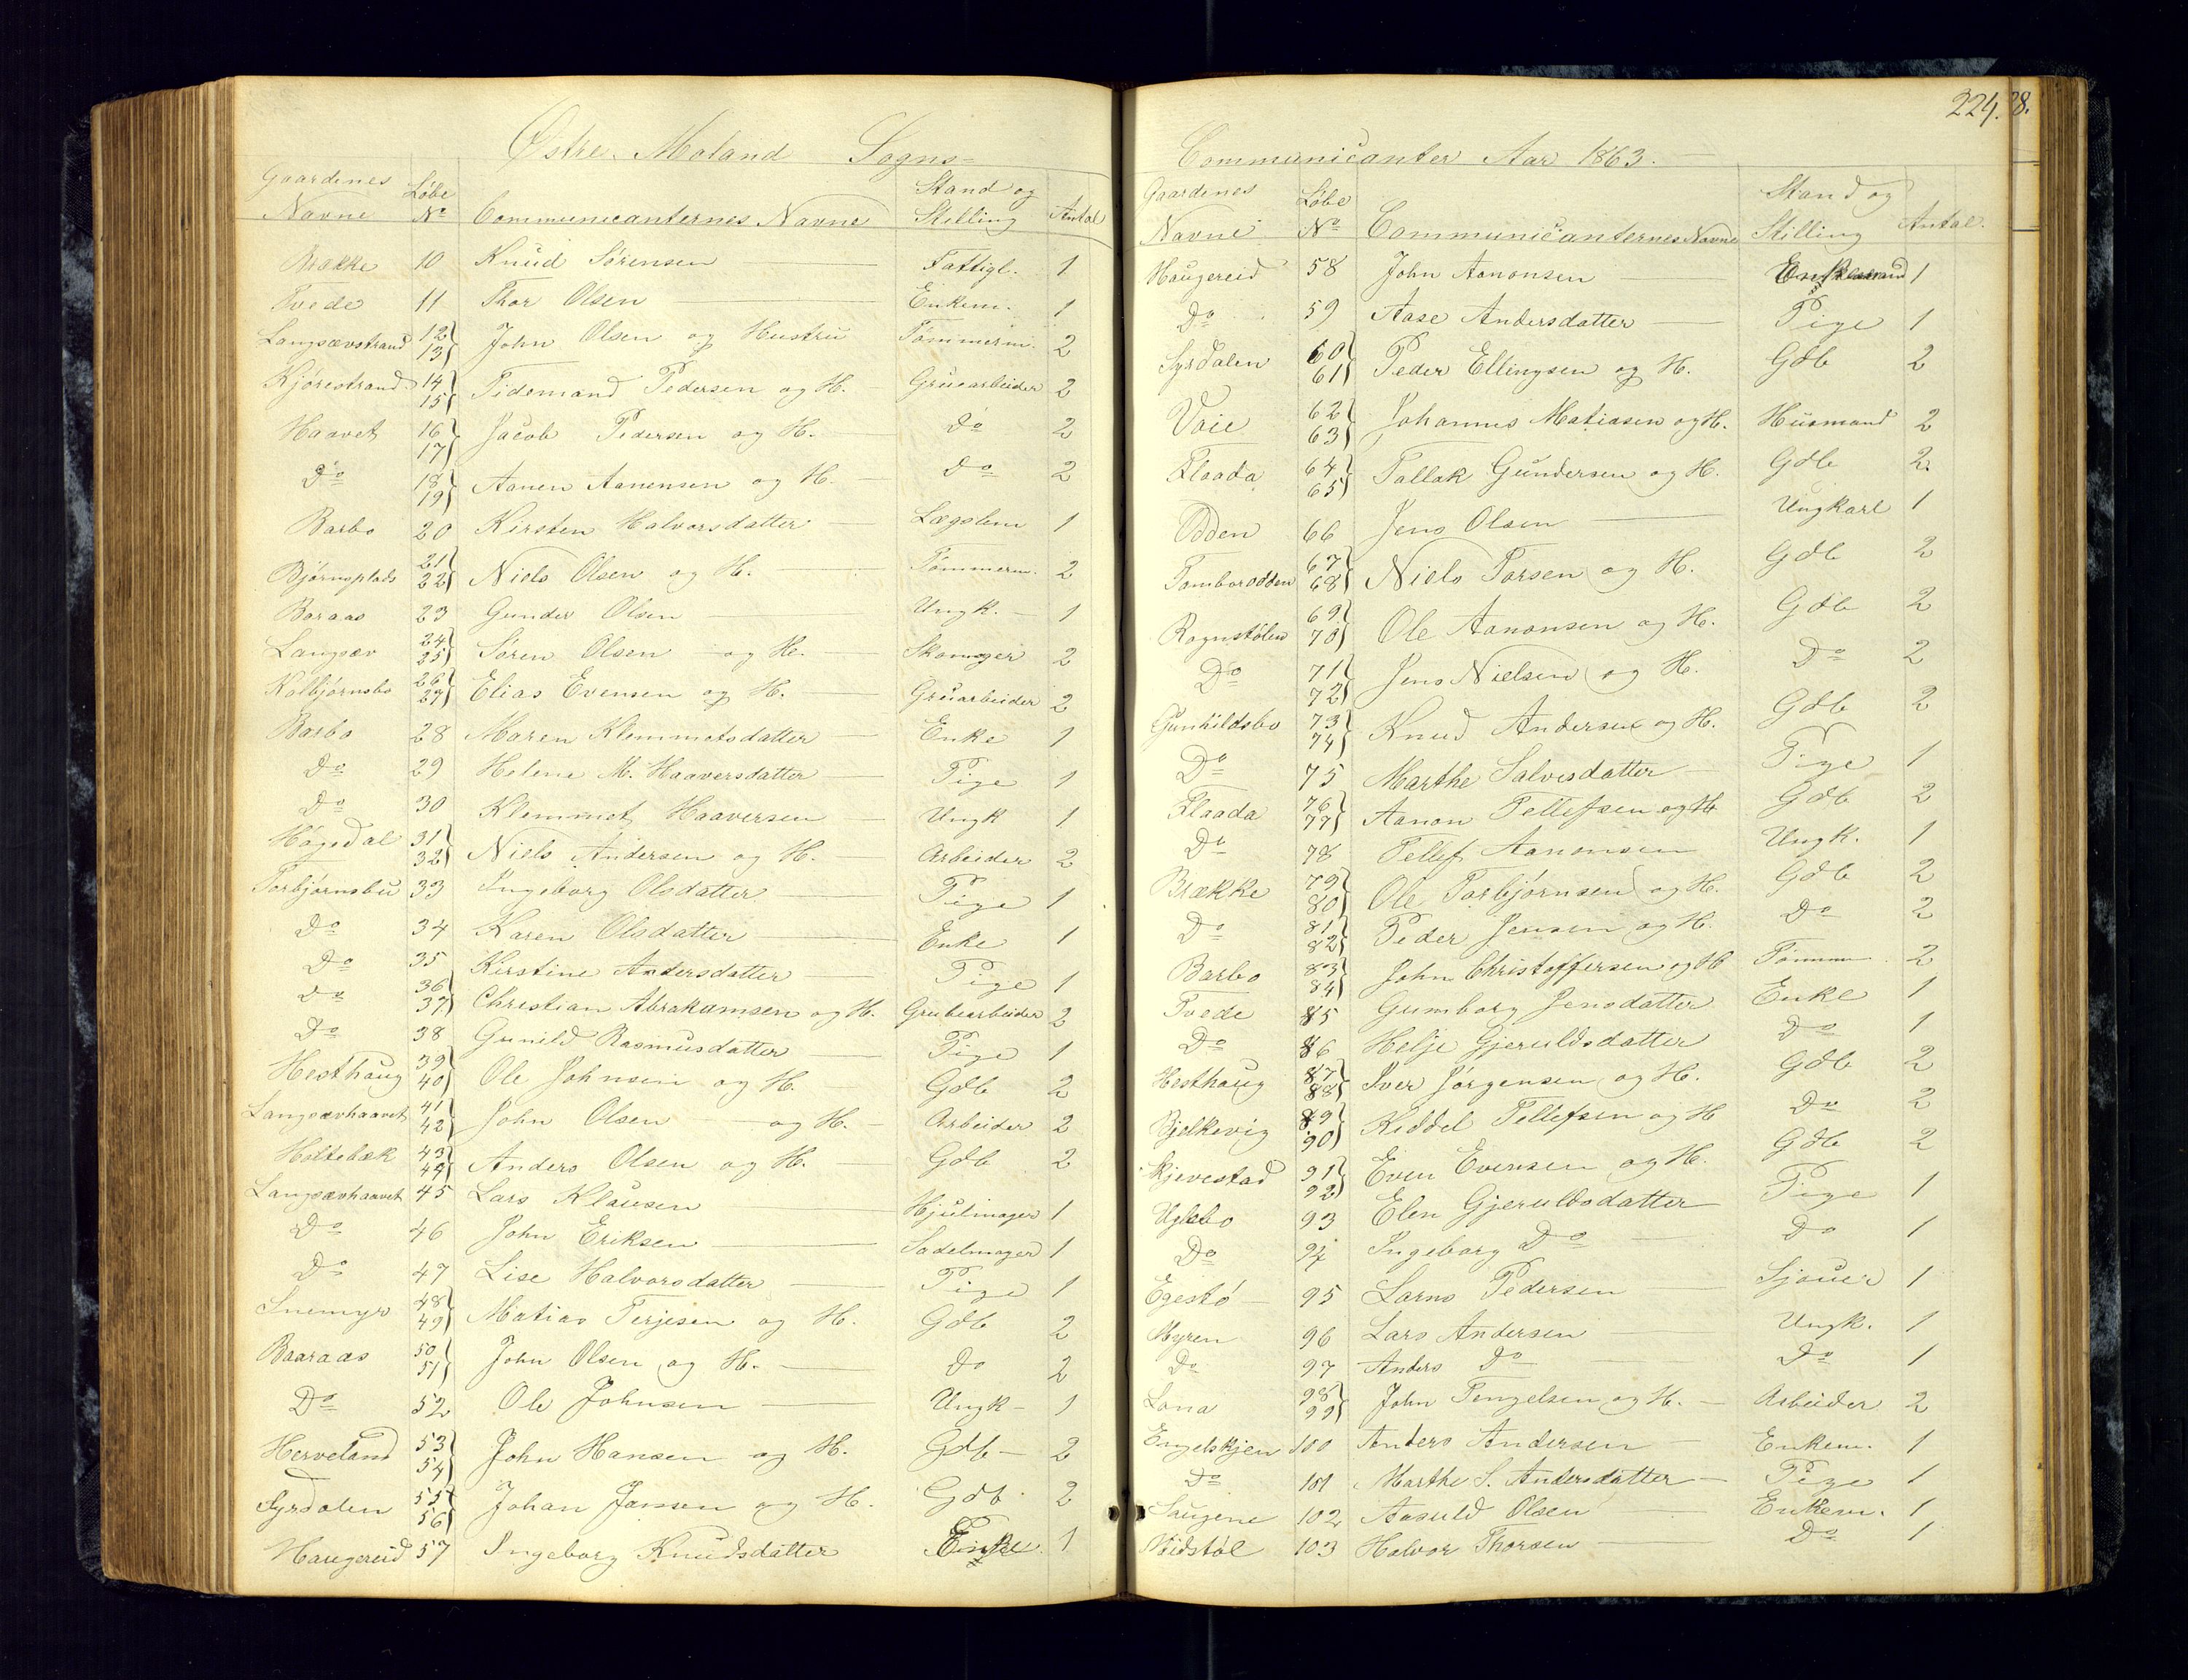 Østre Moland Sogns=
Gaardenes Navne Løbe No Communicanternes Navne Stand og Stilling Antal
Brække 10 Knud Sørensen Fattigl. 1
Tvede 11 Thor Olsen Enkem. 1
Langsævstrand 12 13 John Olsen og Hustru Tømmerm. 2
Kjørestrand 14 15 Tidemand Pedersen og H. Gruearbeider 2
Haavet 16 17 Jacob Pedersen og H. Do 2
Do 18 19 Aanen Aanensen og H. Do 2
Barbo 20 Kirsten Halvorsdatter Lægslem 1
Bjørnsplads 21 22 Niels Olsen og H. Tømmerm. 2
Baraas 23 Gunder Olsen Ungk. 1
Langsæv 24 25 Søren Olsen og H. Skomager 2
Kolbjørnsbo 26 27 Elias Evensen og H. Gruarbeider 2
Barbo 28 Maren Klemmetsdatter Enke 1
Do 29 Helene M. Haaversdatter Pige 1
Do 30 Klemmet Haaversen Ungk 1
Høgedal 31 32 Niels Andersen og H. Arbeider 2
Torbjørnsbu 33 Ingeborg Olsdatter Pige 1
Do 34 Karen Olsdatter Enke 1
Do 35 Kirstine Andersdatter Pige 1
Do 36 37 Christian Abrahamsen og H. Grubearbeider 2
Do 38 Gunild Rasmusdatter Pige 1
Hesthaug 39 40 Ole Johnsen og H. Gdb 2
Langsævhaavet 41 42 John Olsen og H. Arbeider 2
Holtebæk 43 44 Anders Olsen og H. Gdb 2
Langsævhaavet 45 Lars Klausen Hjulmager 1
Do 46 John Eriksen Sadelmager 1
Do 47 Lise Halvorsdatter Pige 1
Snemyr 48 49 Matias Terjesen og H. Gdb 2
Baaraas 50 51 John Olsen og H. Do 2
Do 52 Ole Johnsen Ungk 1
Herveland 53 54 John Hansen og H. Gdb 2
Syrdalen 55 56 Johan Jansen og H. Gdb 2
Haugereid 57 Ingeborg Knudsdatter Enke 1
224. 28.
Communicanter Aar 1863.
Gaardenes Navne Løbe No Communicanternes Navne Stand og Stilling Antal.
Haugereid 58 John Aanonsen Enkemand 1
Do 59 Aase Andersdatter Pige 1
Syrdalen 60 61 Peder Ellingsen og H. Gdb 2
Vaie 62 63 Johannes Matiasen og H. Husmand 2
Flaada 64 65 Tallak Gundersen og H. Gdb 2
Odden 66 Jens Olsen Ungkarl 1
Tomborodden 67 68 Niels Torsen og H. Gdb 2
Rognstølen 69 70 Ole Aanonsen og H. Gdb 2
Do 71 72 Jens Nielsen og H. Do 2
Gunhildsbo 73 74 Knud Andersen og H. Gdb 2
Do 75 Marthe Salvesdatter Pige 1
Flaada 76 77 Aanon Tellefsen og H Gdb 2
Do 78 Tellef Aanonsen Ungk. 1
Brække 79 80 Ole Torbjørnsen og H. Gdb 2
Do 81 82 Peder Jensen og H. Do 2
Barbo 83 84 John Christoffersen og H 2
Tvede 85 Gumborg Jensdatter Enke 1
Do 86 Helje Gjeruldsdatter Do 1
Hesthaug 87 88 Iver Jørgensen og H. Gdb 2
Bjelkevig 89 90 Kiddel Tellefsen og H Do 2
Skjevestad 91 92 Even Evensen og H. Gdb 2
Uglebo 93 Elen Gjeruldsdatter Pige 1
Do 94 Ingeborg Do Do 1
Egestø 95 Larns Pedersen Sjouer 1
Myren 96 Lars Andersen Ungk. 1
Do 97 Anders Do Do 1
Lona 98 99 John Tengelsen og H. Arbeider 2
Engelskjen 100 Anders Andersen Enkem. 1
Do 101 Marthe S. Andersdatter Pige 1
Saugene 102 Aasuld Olsen Enkem. 1
Nødstøl 103 Halvor Thorsen Do 1